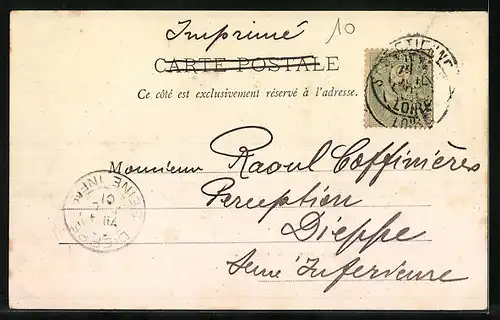 Imprimé
10
CARTE POSTALE
Ce côté est exclusivement réservé à l'adresse.
Monsieur Raoul Coffinières
Perception
Dieppe
Seine Inférieure
LOIRE
DIEPPE
SEINE INFRE